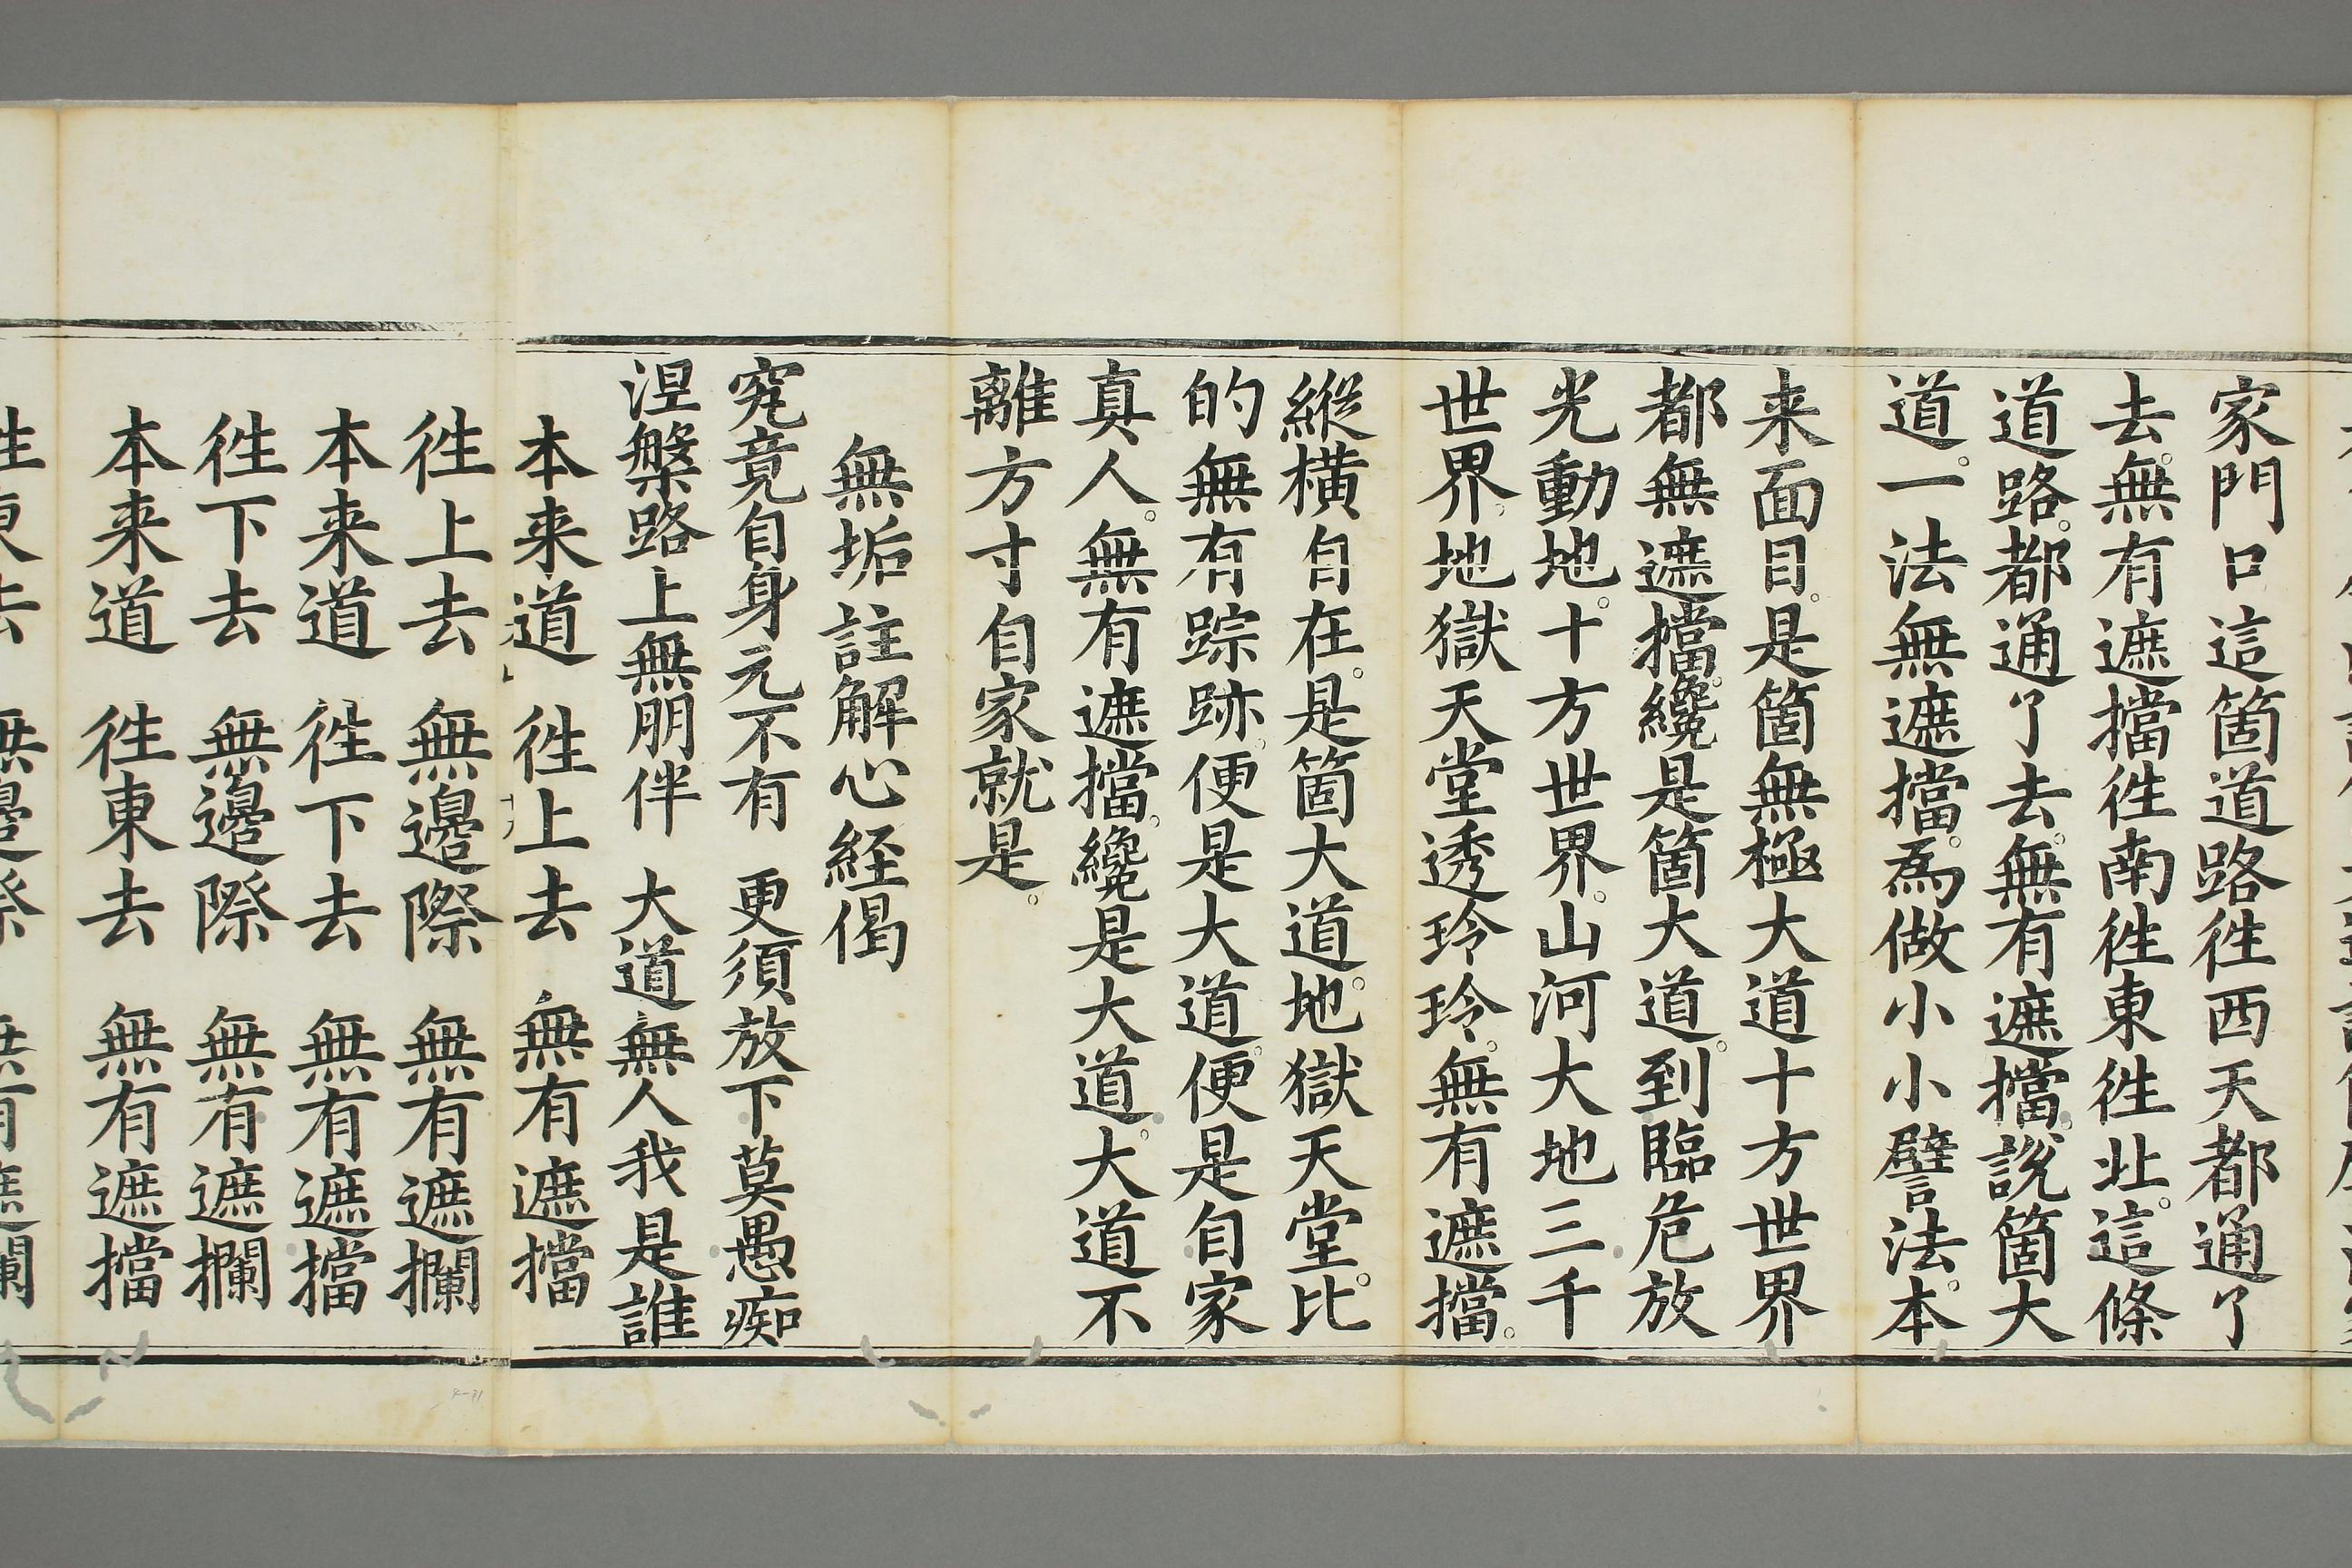 家門口這箇道路徃西天都通了
去。無有遮擋徃南徃東徃北。這條
道路。都通了去。無有遮擋。說箇大
道。一法無遮擋。為做小小譬法。本
来面目。是箇無極大道十方世界
都無遮擋。纔是箇大道。到臨危放
光動地。十方世界。山河大地三千
世界。地獄天堂透玲玲。無有遮擋。
縱橫自在。是箇大道。地獄天堂。比
的無有踪跡。便是大道。便是自家
真人。無有遮擋。纔是大道。大道不
離方寸自家就是。
無垢註解心経偈
究竟自身元不有 更須放下莫愚痴
涅槃路上無朋伴 大道無人我是誰
本来道 徃上去 無有遮擋
徃上去 無邊際 無有遮攔
本来道 徃下去 無有遮擋
徃下去 無邊際 無有遮攔
本来道 徃東去 無有遮擋
徃東去 無邊際 無有遮攔